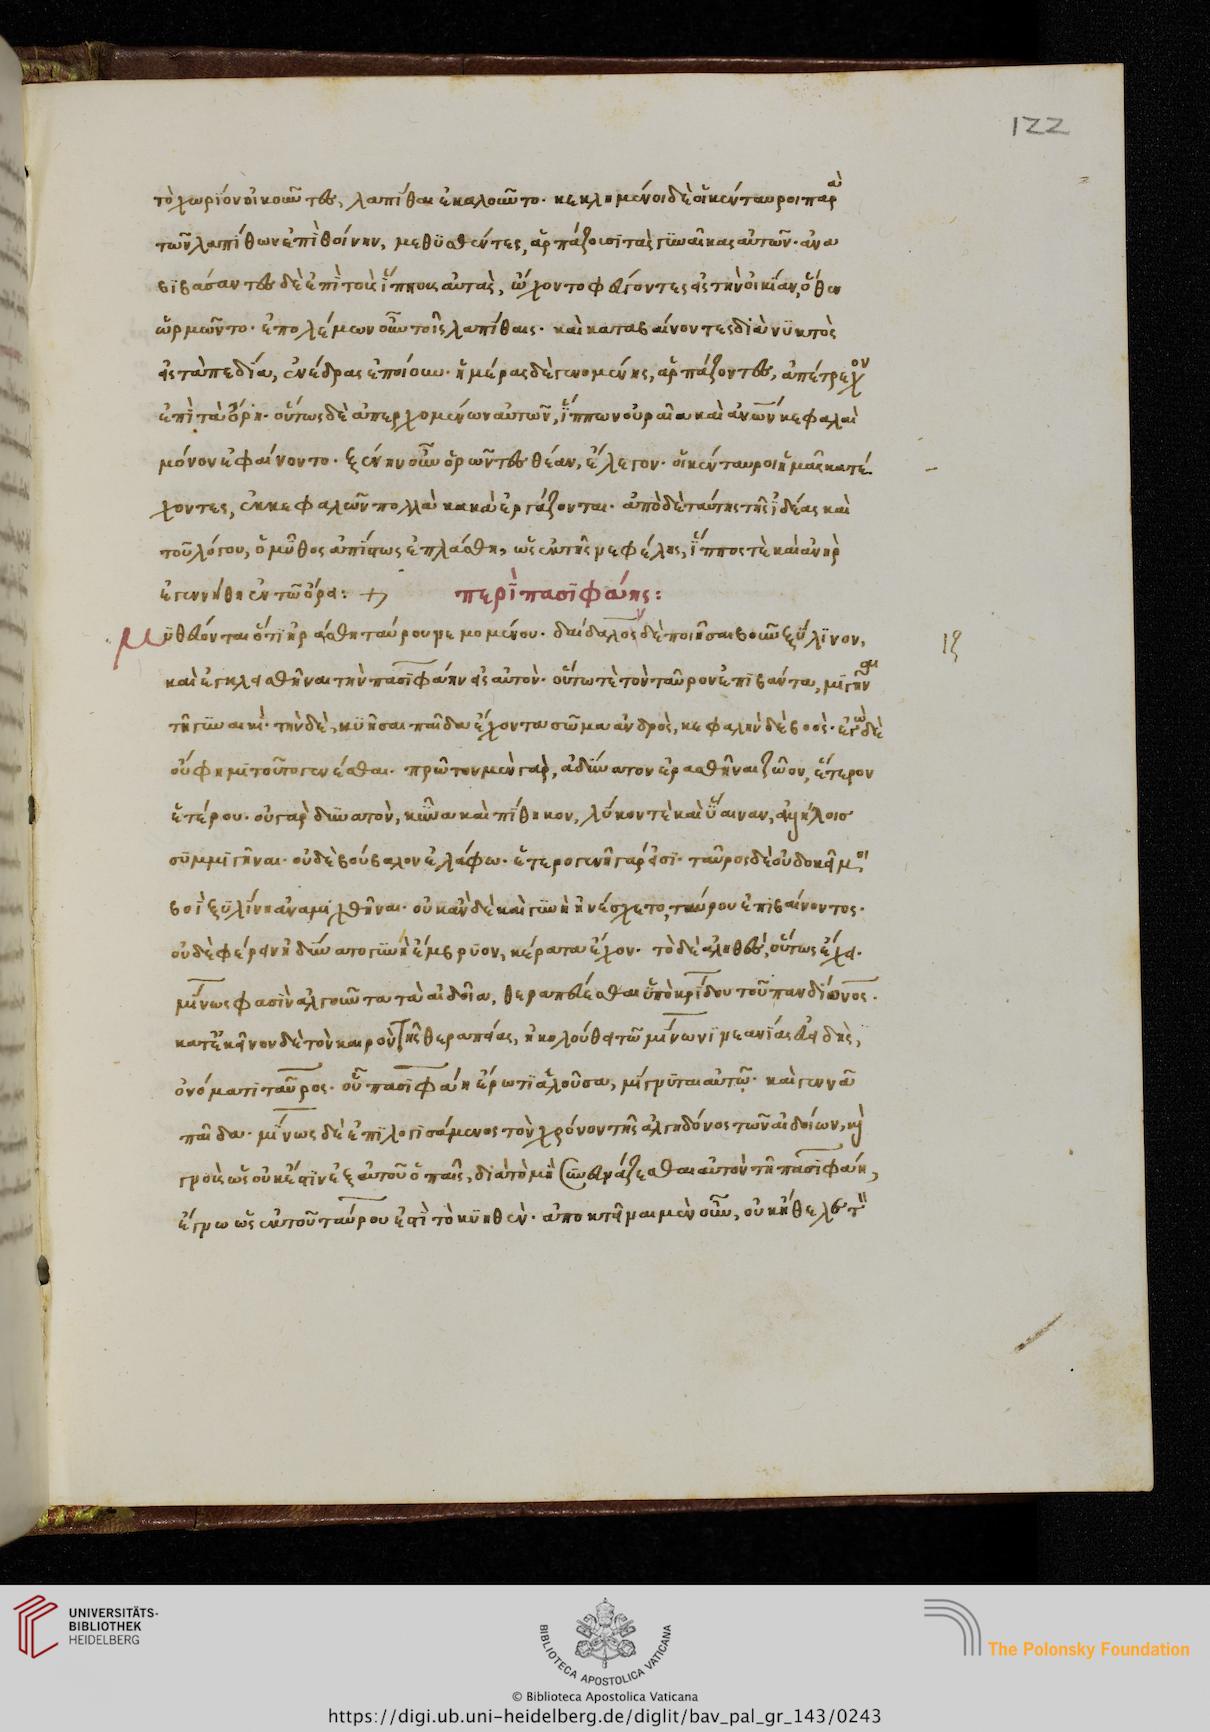 122
τὸ χωρίον οἰκοῦντες, λαπίθαι ἐκαλοῦντο. κεκλημένοι δὲ οἱ κένταυροι παρὰ
τῶν λαπίθων ἐπὶ θοίνην, μεθϋσθέντες, ἁρπάζουσι τὰς γϋναῖκας αὐτῶν. ἀνα
βϊβάσαντες δὲ ἐπὶ τοὺς ἵππους αὐτὰς, ᾤχοντο φεύγοντες εἰς τὴν οἰκίαν, ὅθεν
ὡρμῶντο. ἐπολέμουν οὖν τοῖς λαπίθαις. καὶ καταβαίνοντες διὰ νϋκτὸς
εἰς τὰ πεδία, ἐνέδρας ἐποίουν. ἡμέρας δὲ γενομένης, ἁρπάζοντες, ἀπέτρεχον
ἐπὶ τὰ ὄρη. οὕτως δὲ ἀπερχομένων αὐτῶν, ἵππων οὐραῖα καὶ ἀνων κεφαλαὶ
μόνον ἐφαίνοντο. ξένην οὖν ὁρῶντες θέαν, ἔλεγον. οἱ κένταυροι ἡμᾶς κατέ
χοντες, ἐκ κεφαλῶν πολλὰ κακὰ ἐργάζονται. ἀπὸ δὲ ταύτης τῆς ἰδέας καὶ
τοῦ λόγου, ὁ μῦθος ἀπίστως ἐπλάσθη, ὡς ἐκ τῆς νεφέλης, ἵππος τὲ καὶ ἀνὴρ
ἐγεννήθη ἐν τῶ ὄρει:
περὶ πασϊφάης:
Μϋθεύονται ὅτϊ ἠράσθη ταύρου νεμομένου. δαίδαλον δὲ ποιῆσαι βοῦν ξϋλίνον,
ιζ
καὶ ἐγκλεισθῆναι τὴν πασϊφάην εἰς αὐτὸν. οὕτω τὲ τὸν ταῦρον ἐπϊβάντα, μϊγῆναι
τῆ γϋναικὶ. τὴν δὲ, κϋῆσαι παῖδα ἔχοντα σῶμα ἀνδρὸς, κεφαλὴν δὲ βοὸς. ἐγὼ δὲ
οὔ φημϊ τοῦτο γενέσθαι. πρῶτον μὲν γὰρ, ἀδύνατον ἐρασθῆναι ζῶον, ἕτερον
ἑτέρου. οὐ γὰρ δϋνατὸν, κύνα καὶ πίθηκον, λύκον τὲ καὶ ὕαιναν, ἀλλήλοισ
σϋμμϊγῆναι. οὐδὲ βούβαλον ἐλάφω. ἑτερογενῆ γάρ εἰσϊ. ταῦρος δὲ οὐ δοκεῖ μοι
βοῒ ξϋλίνη ἀναμϊχθῆναι. οὐκ ἂν δὲ καὶ γϋνὴ ἠνέσχετο, ταύρου ἐπϊβαίνοντος.
οὐδὲ φέρειν ἠδύνατο γϋνὴ ἔμβρϋον, κέρατα ἔχον. τὸ δὲ ἀληθὲς, οὕτως ἔχει.
μίνως φασὶν ἀλγοῦντα τὰ αἰδοῖα, θεραπεύεσθαι ὑπὸ κρίδου τοῦ πανδίονος.
κατ' ἐκεῖνον δὲ τὸν καιρὸν τῆς θεραπείας, ἠκολούθει τῶ μίνωνϊ νεανίας εὐειδὴς,
ὀνόματϊ ταῦρος. οὗ πασϊφάη ἔρωτϊ ἁλοῦσα, μίγνϋται αὐτῷ. καὶ γεννᾶ
παῖδα. μίνως δὲ ἐπϊλογϊσάμενος τὸν χρόνον τῆς ἀλγηδόνος τῶν αἰδοίων, καὶ
γνοὺς ὡς οὐκ ἔστϊν ἐξ αὐτοῦ ὁ παῖς, διὰ τὸ μὴ σϋνευνάζεσθαι αὐτὸν τῆ πασϊφάη,
ἔγνω ὡς ἐκ τοῦ ταύρου ἐστὶ τὸ κϋηθὲν. ἀποκτεῖναι μὲν οὖν, οὐκ ἤθελε τὸ
UNIVERSITÄTS-
BIBLIOTHEK
HEIDELBERG
BIBLIOTECA APOSTOLICA VATICANA
The Polonsky Foundation
© Biblioteca Apostolica Vaticana
https://digi.ub.uni-heidelberg.de/diglit/bav_pal_gr_143/0243